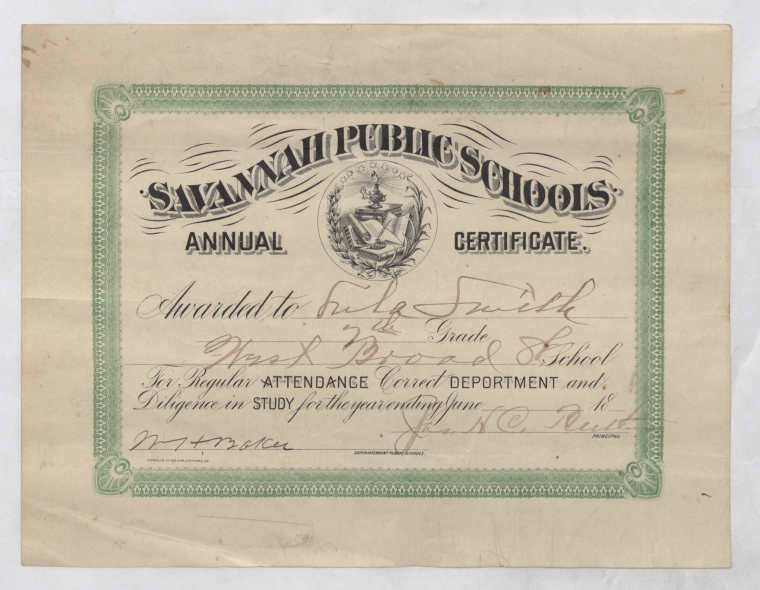 SAVANNAH PUBLIC SCHOOLS
ANNUAL CERTIFICATE.
Awarded to Lula Smith
7th Grade
West Broad St School
For Regular ATTENDANCE Correct DEPORTMENT and
Diligence in STUDY for the year ending June 18
Jas. H. C.
PRINCIPAL
W H Baker
SUPERINTENDENT PUBLIC SCHOOLS.